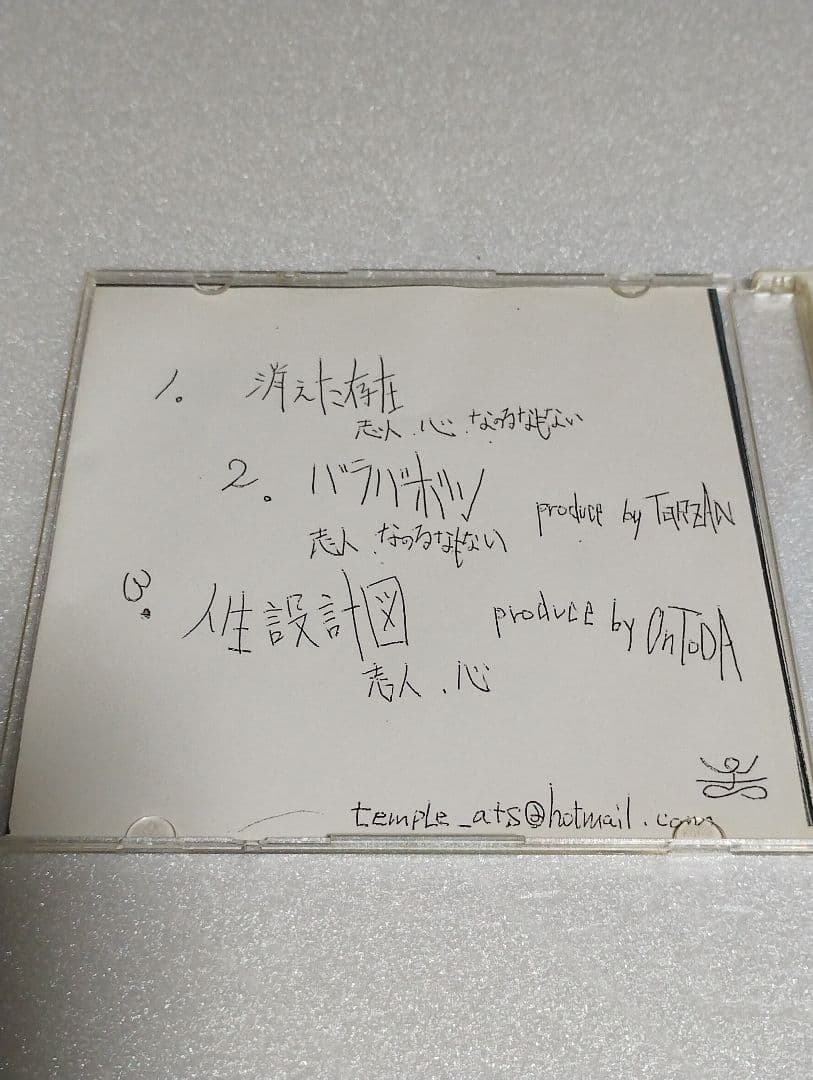 1. 消えた存在
志人.心.なのるなもない
2. バラバボッツ
produce by TARZAN
志人.なのるなもない
3. 人生設計図
produce by OnToDA
志人.心
temple_ats@hotmail.com